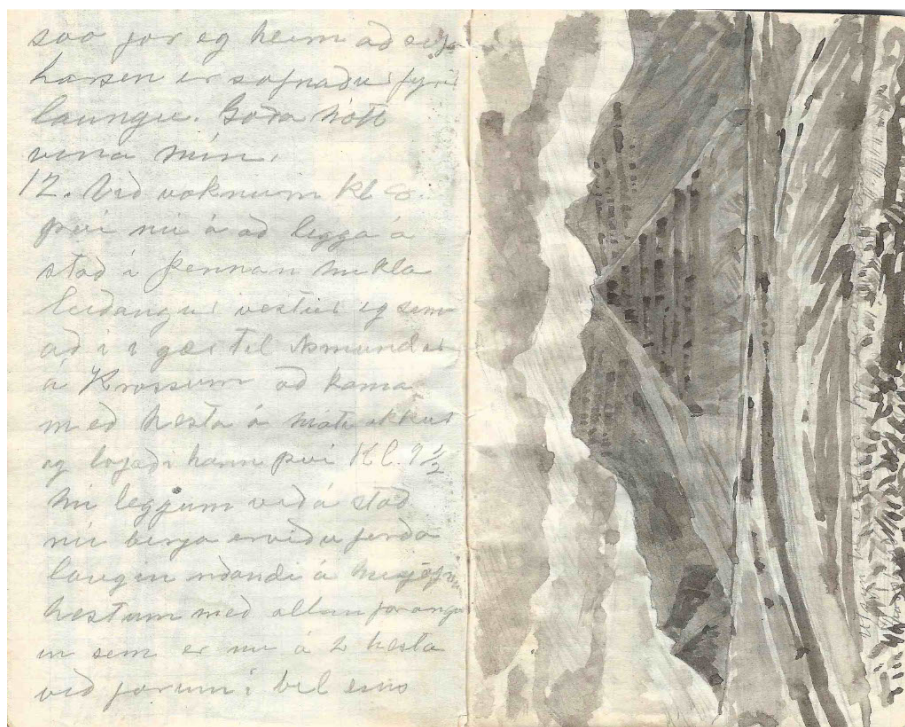 svo for eg heim að
er sofnaður fyrir
laungu. Goða Nótt
vina mín.
12. Við voknum kl 8.
þvi nú á að leggja á
stað i þennan mikla
leiðangur vestur eg sem
aði i gær til Asmundar
á Krossum að koma
með hesta á móti okkur
og lofaði hann þvi Kl. 9 1/2
nu leggjum við á stað
nú birja erviðu ferða
laugin riðandi á
hestum með allan farangur
in sem er nu á 2 hesta
við forum i bil eins